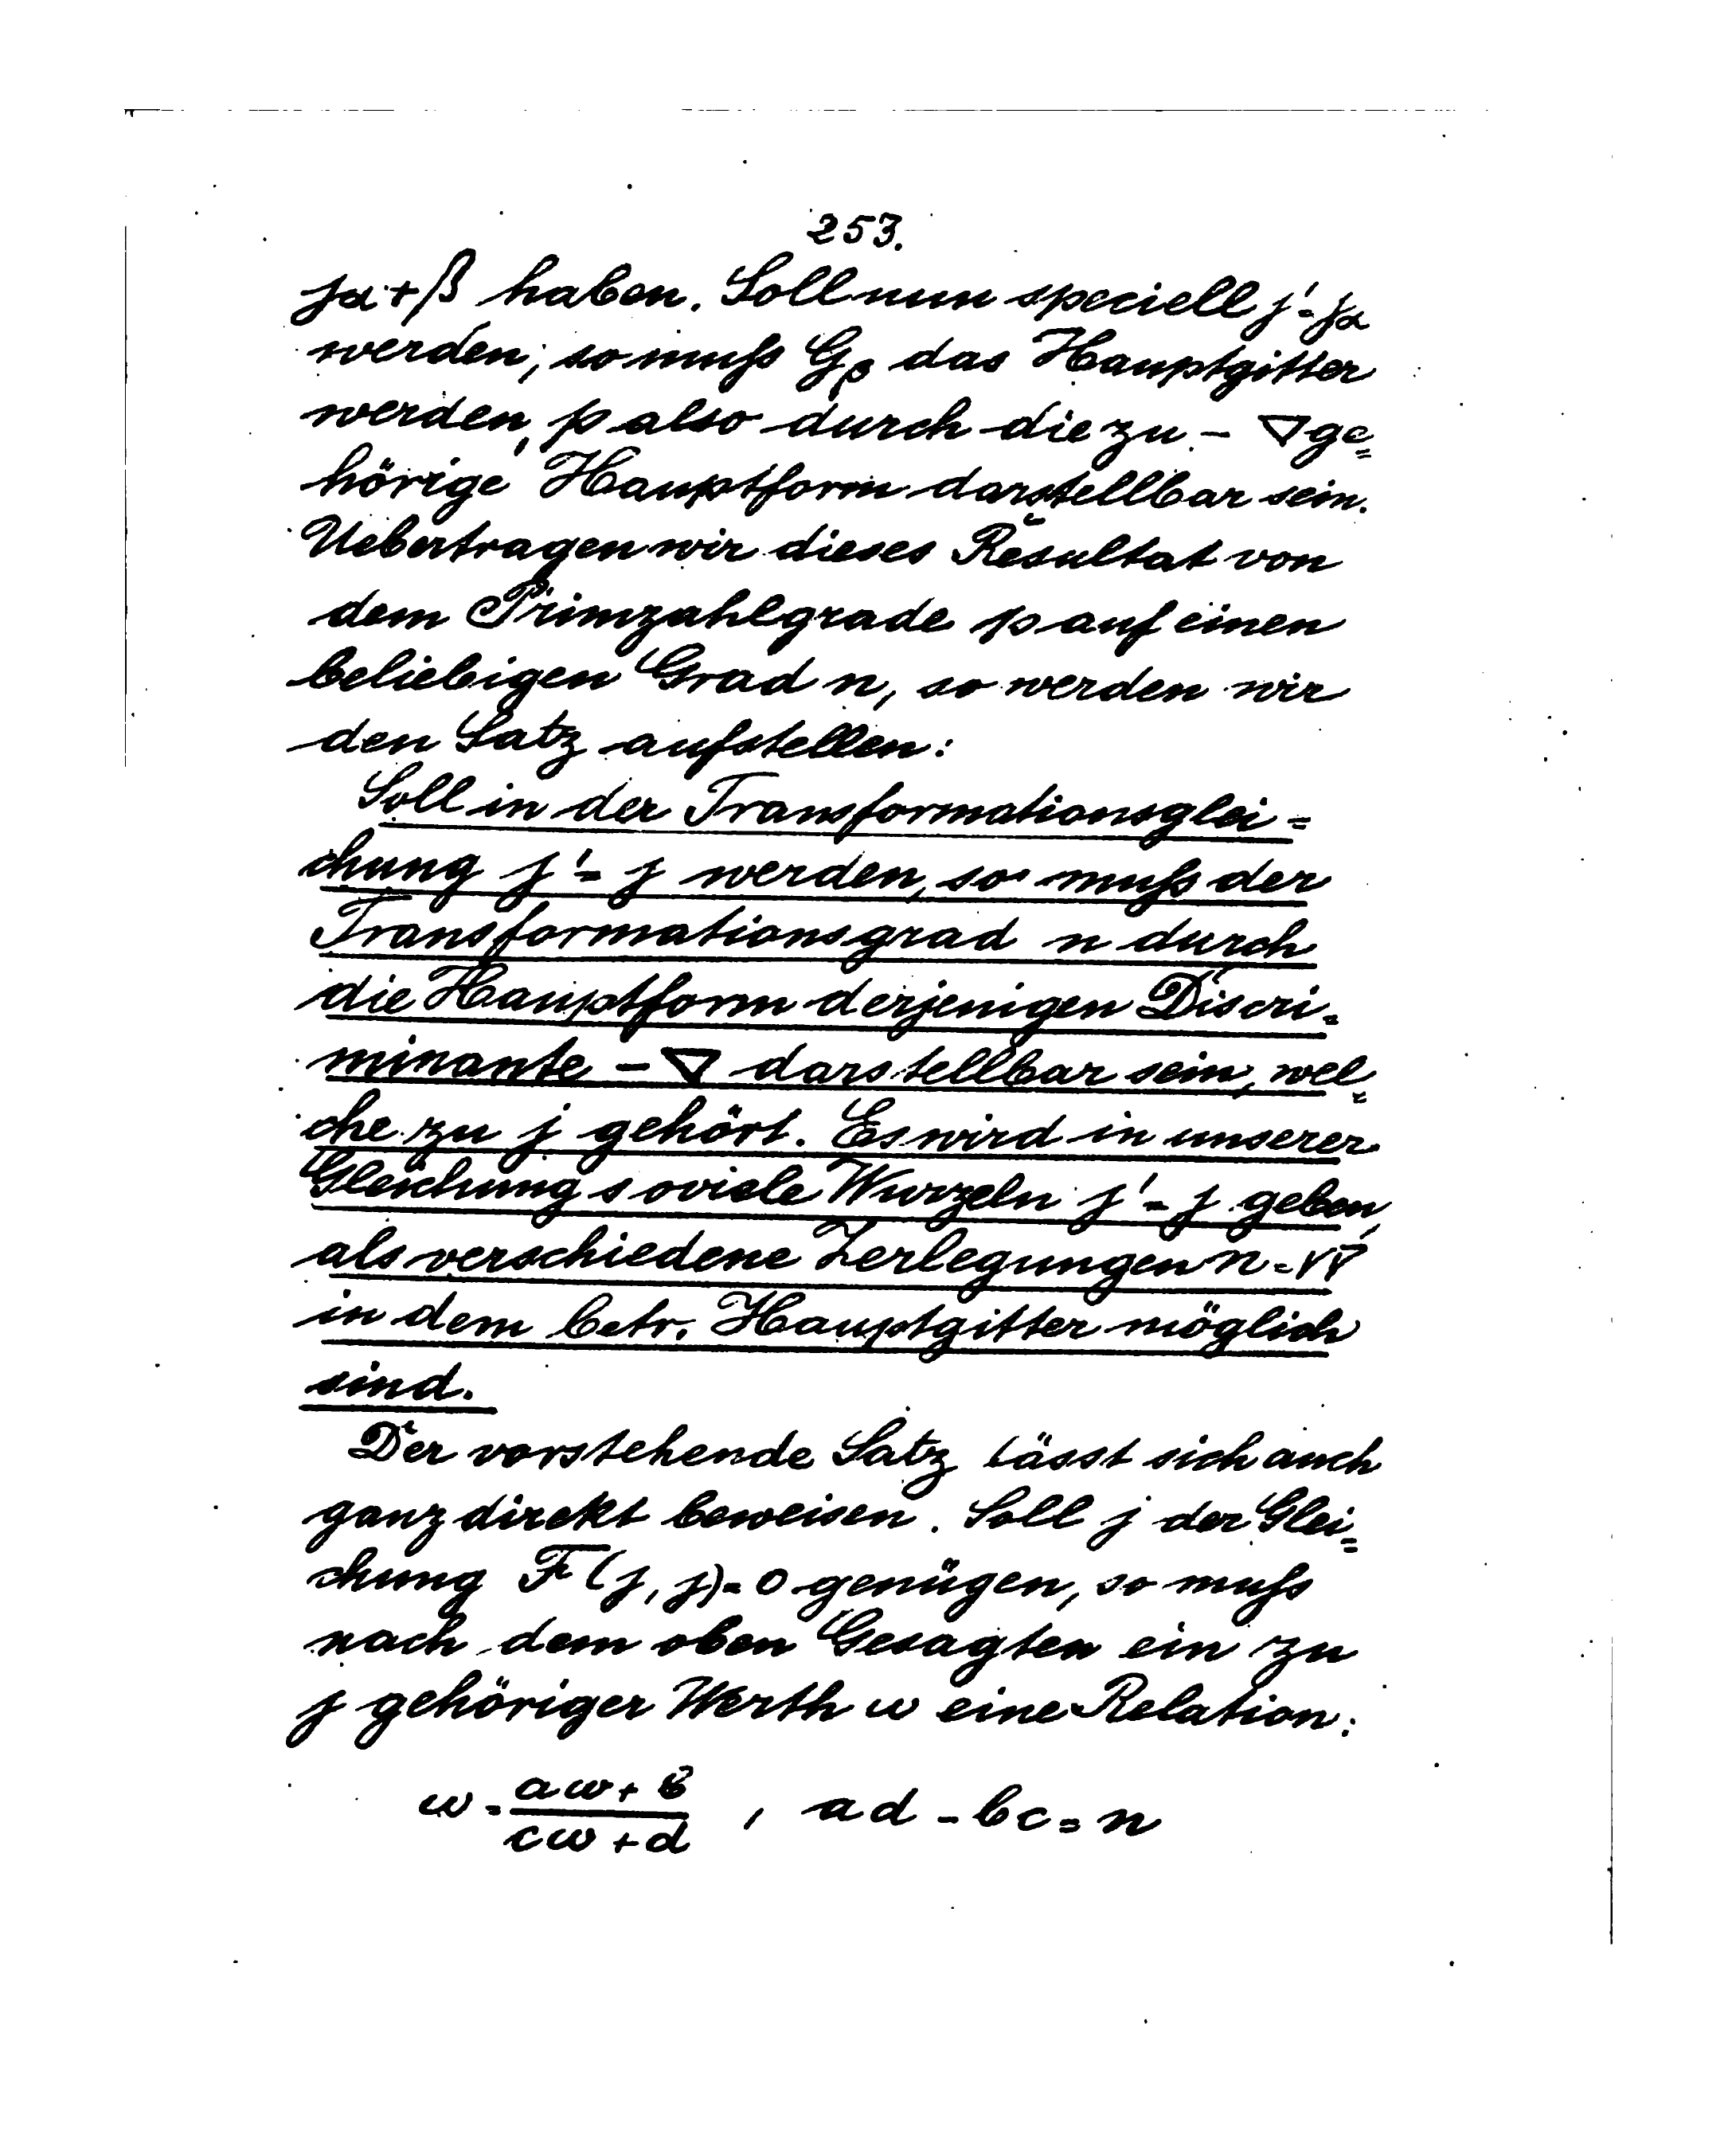 253.
jα+β haben. Soll nun speciell j'=jα
werden, so muſs Gβ das Hauptgitter
werden, p also durch die zu -∇ ge=
hörige Hauptform darstellbar sein.
Uebertragen wir dieses Resultat von
dem Primzahlgrade p auf einen
beliebigen Grad n, so werden wir
den Satz aufstellen:
Soll in der Transformationsglei=
chung j'=j werden, so muſs der
Transformationsgrad n durch
die Hauptform derjenigen Discri=
minante -∇ darstellbar sein, wel=
che zu j gehört. Es wird in unserer
Gleichung soviele Wurzeln j'=j geben,
als verschiedene Zerlegungen n=νν̄
in dem betr. Hauptgitter möglich
sind.
Der vorstehende Satz lässt sich auch
ganz direkt beweisen. Soll j der Glei=
chung F(j,j)=0 genügen, so muſs
nach dem oben Gesagten ein zu
j gehöriger Werth ω eine Relation:
ω = (aω+b)/(cω+d) , ad-bc=n